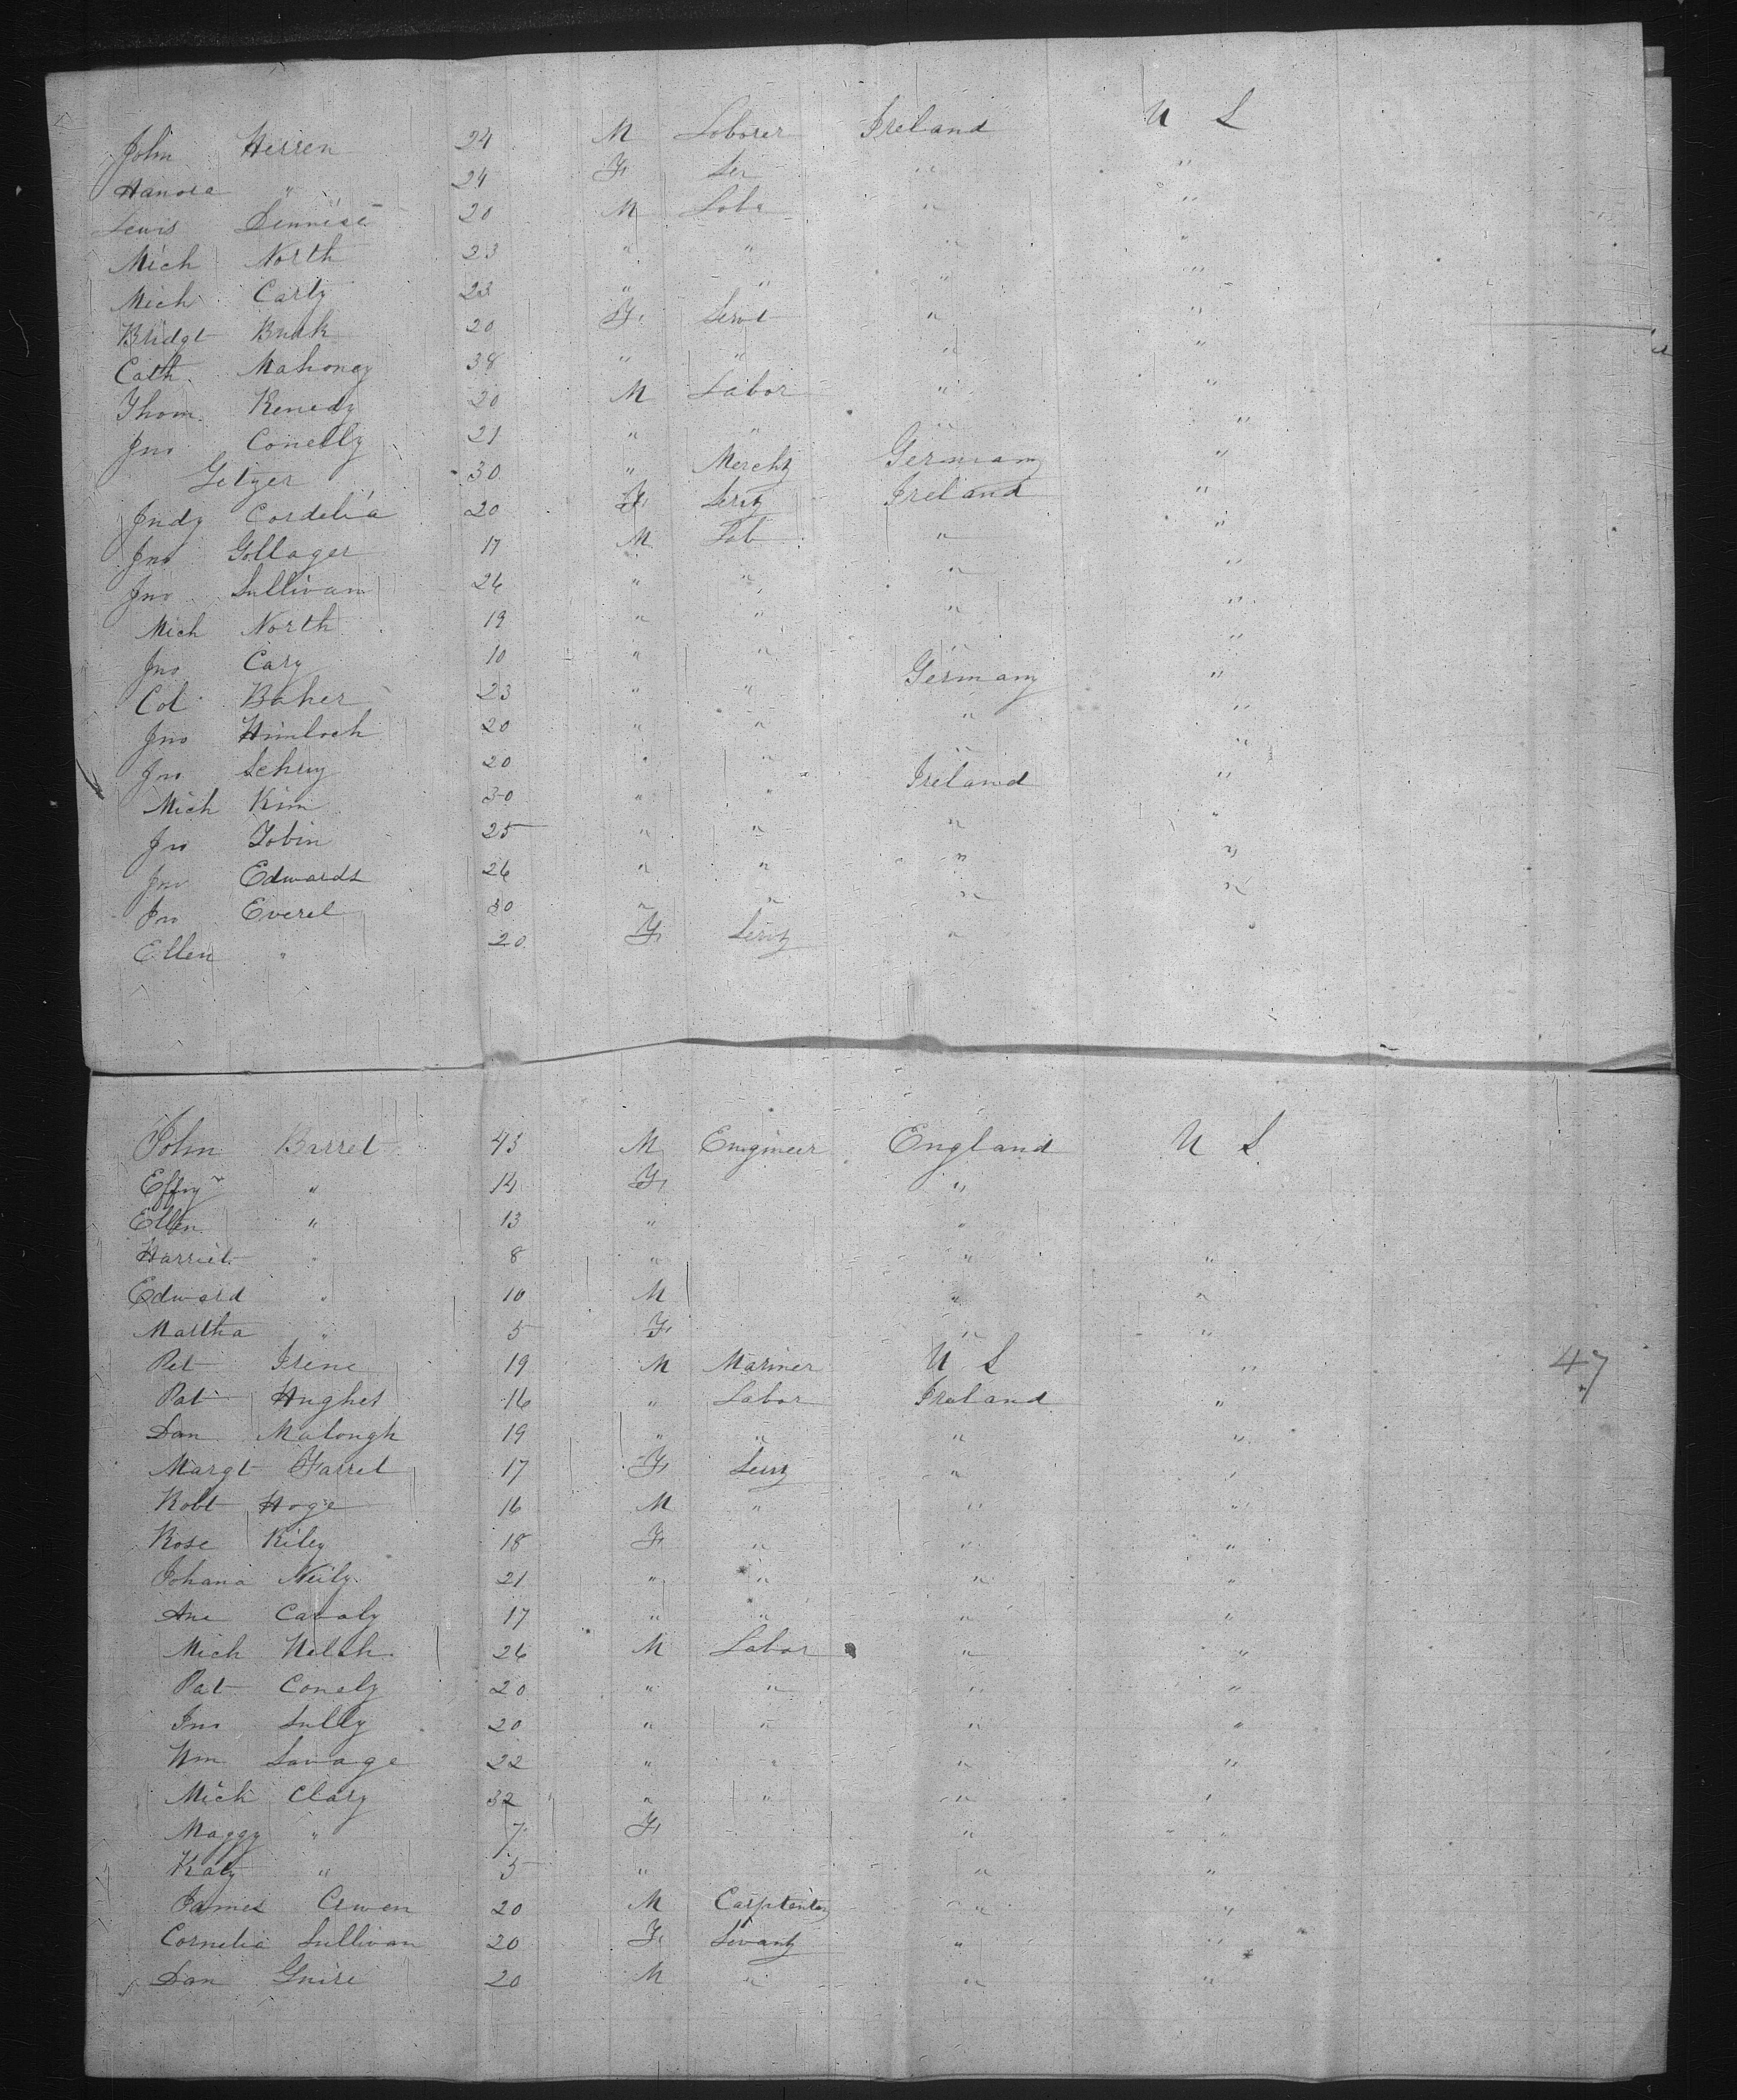 John Herren 24 M Loborer Ireland U S
Hanora " 24 F Ser " "
Lewis 20 M Lobe " "
Mich North 23 " " " "
Mich Carty 23 " " " "
Bridgt Burk 20 F Servt " "
Cath Mahoney 38 " " " "
Thom. Kenedy 20 M Labor " "
Jno Conelly 21 " " " "
Getzer 30 " Merch Germany "
Judy Cordelia 20 F Serv Ireland "
Jno Gollager 17 M Lab " "
Jno Sullivan 26 " " " "
Mich North 19 " " " "
Jno Cary 10 " " " "
Col Baher 23 " " Germany "
Jno Himloch 20 " " " "
Jno 20 " " " "
Mich Kim 30 " " Ireland "
Jno Tobin 25 " " " "
Jno Edwards 26 " " " "
Jno Everel 30 " " " "
Ellen " 20 F Serv " "
John Barret 43 M Engineer England U S
Effny " 14 F "
Ellen " 13 " "
Harriet " 8 " " "
Edward " 10 M " "
Martha " 5 F " "
Pet Irene 19 M Mariner U S " 47
Pat Hughes 16 " Labor Ireland "
Dan Malongh 19 " " " "
Margt Farrel 17 F Serv " "
Robt Hoge 16 M " " "
Rose Riley 18 F " " "
Johana Neily 21 " " " "
Ane Cavaly 17 " " " "
Mich Welsh 26 M Labor " "
Pat Conely 20 " " " "
Jno Sully 20 " " " "
Wm Savage 22 " " " "
Mick Clary 32 " " " "
Maggy " 7 F " "
Katy " 5 " " "
James Cewen 20 M Carptenter " "
Cornelia Sullivan 20 F Servant " "
Dan Guire 20 M " " "